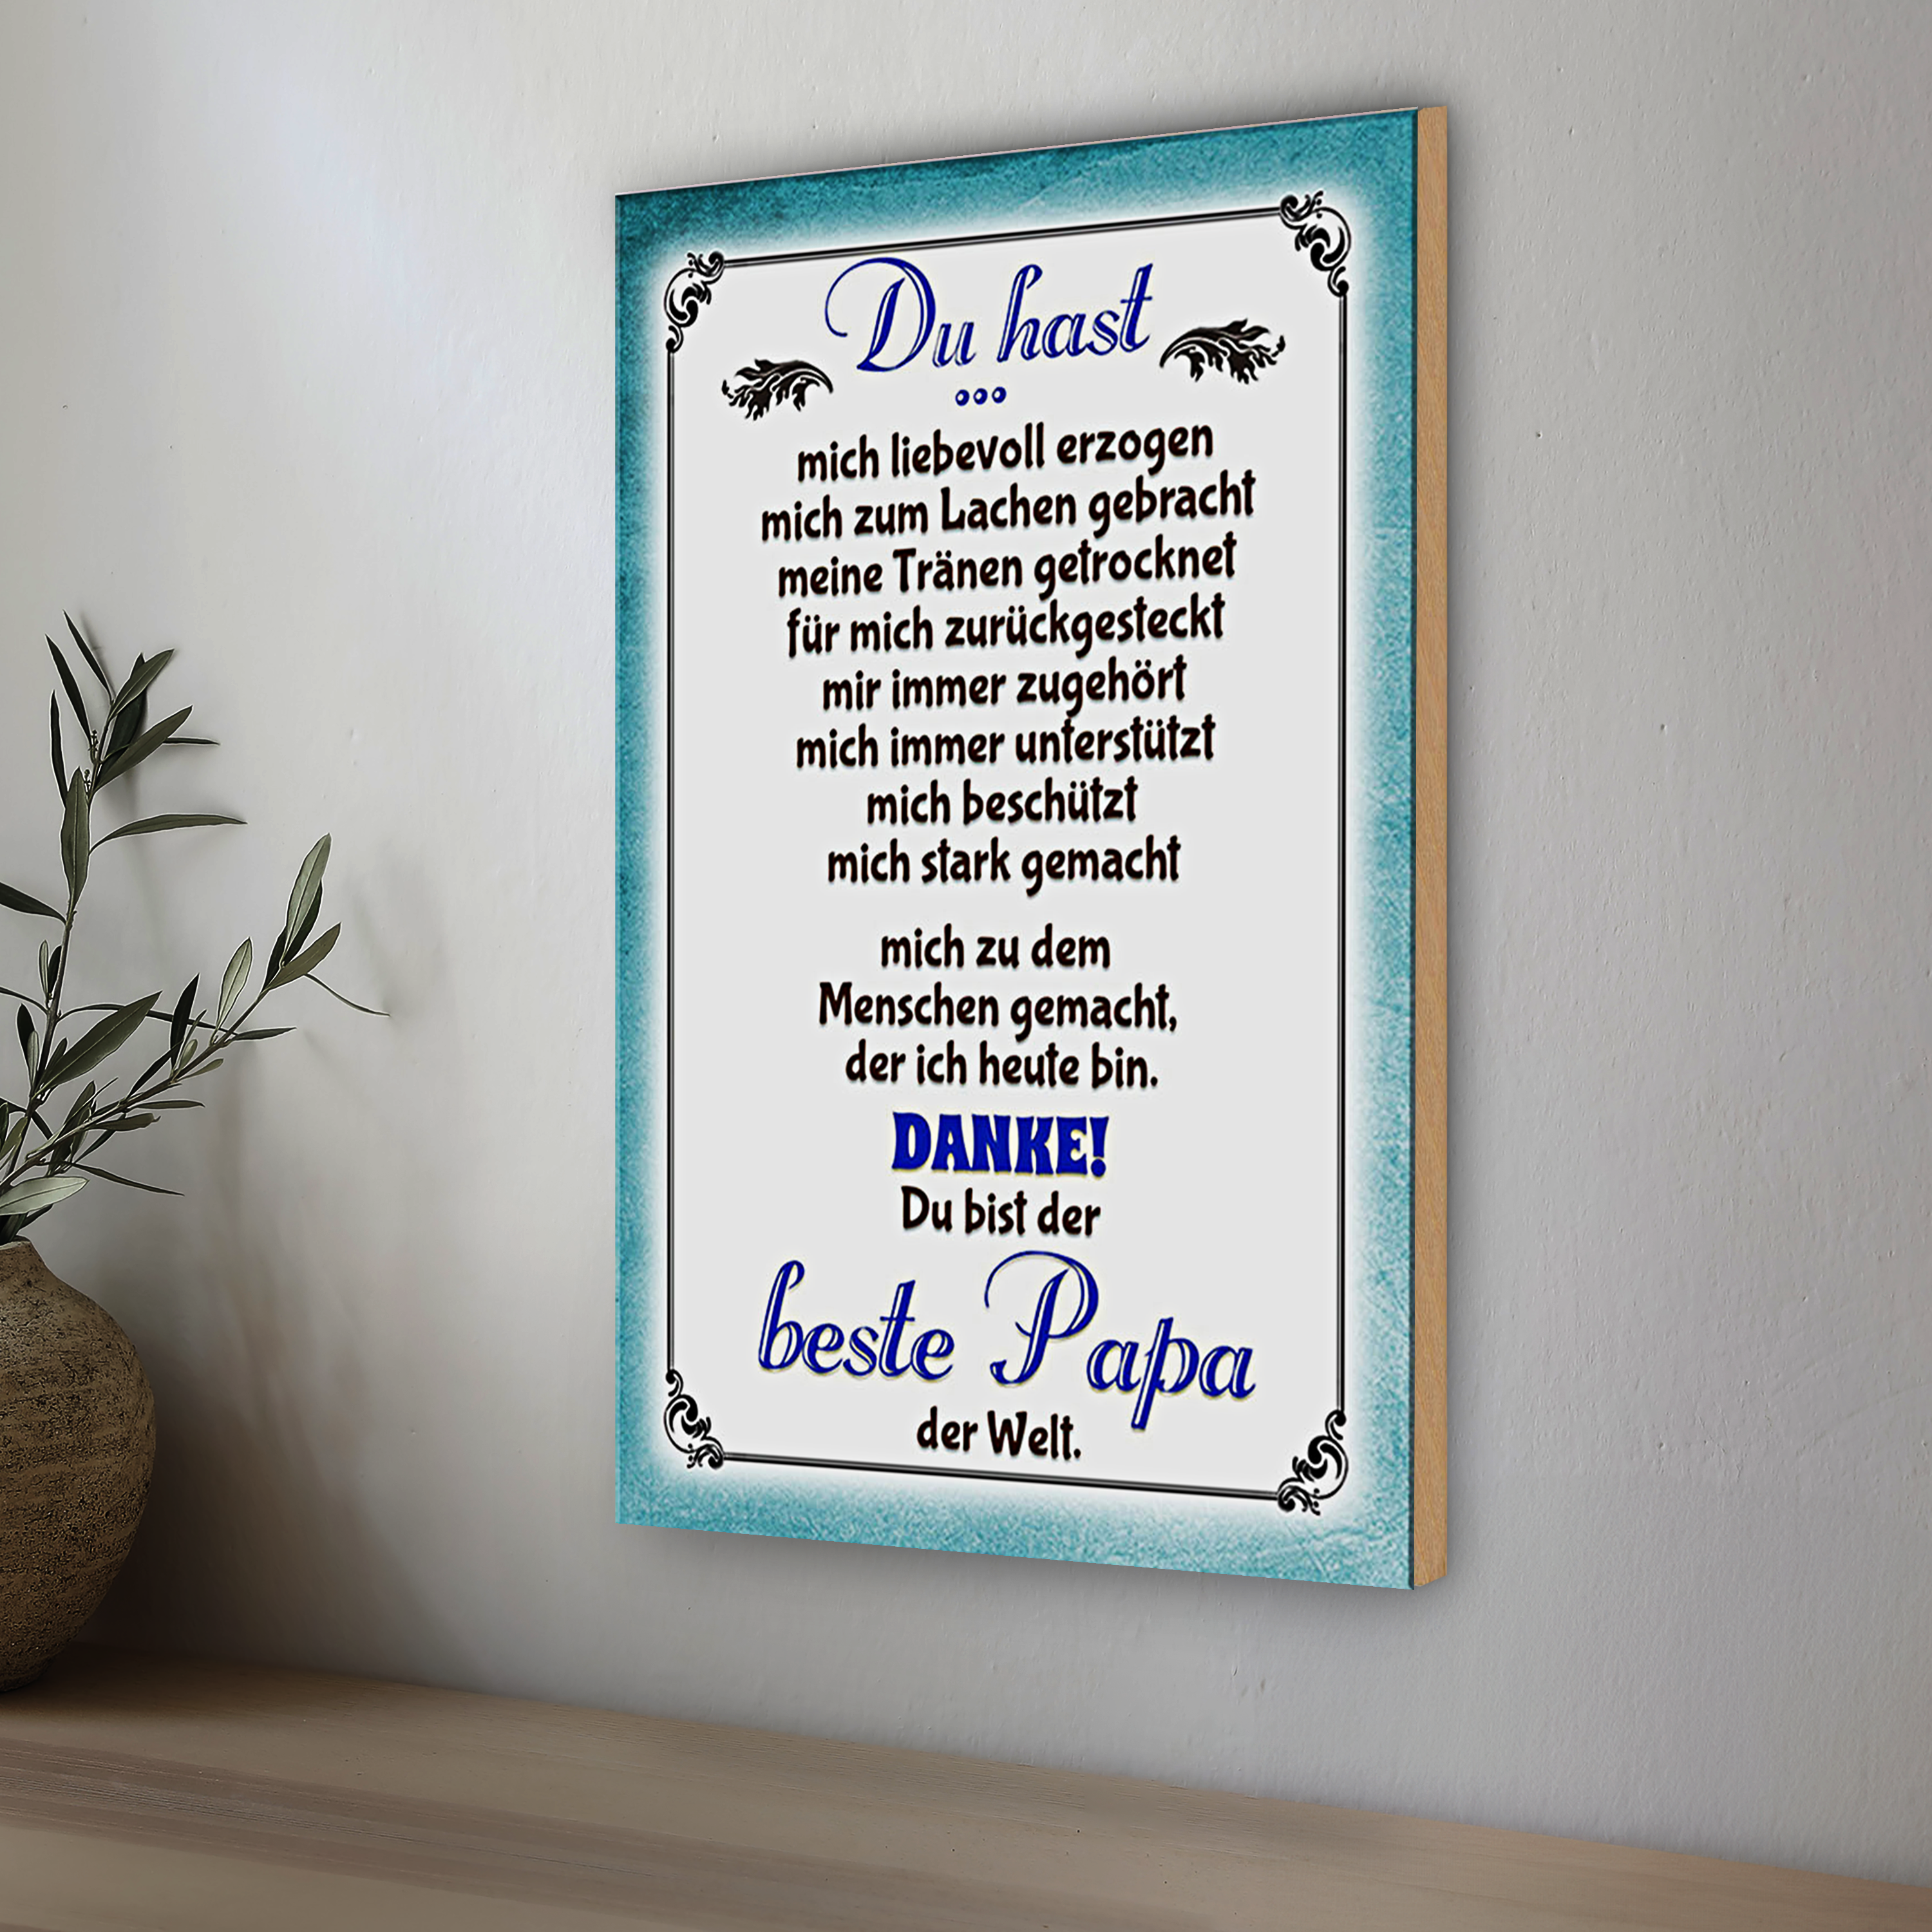 Du hast
...
mich liebevoll erzogen
mich zum Lachen gebracht
meine Tränen getrocknet
für mich zurückgesteckt
mir immer zugehört
mich immer unterstützt
mich beschützt
mich stark gemacht
mich zu dem
Menschen gemacht,
der ich heute bin.
DANKE!
Du bist der
beste Papa
der Welt.